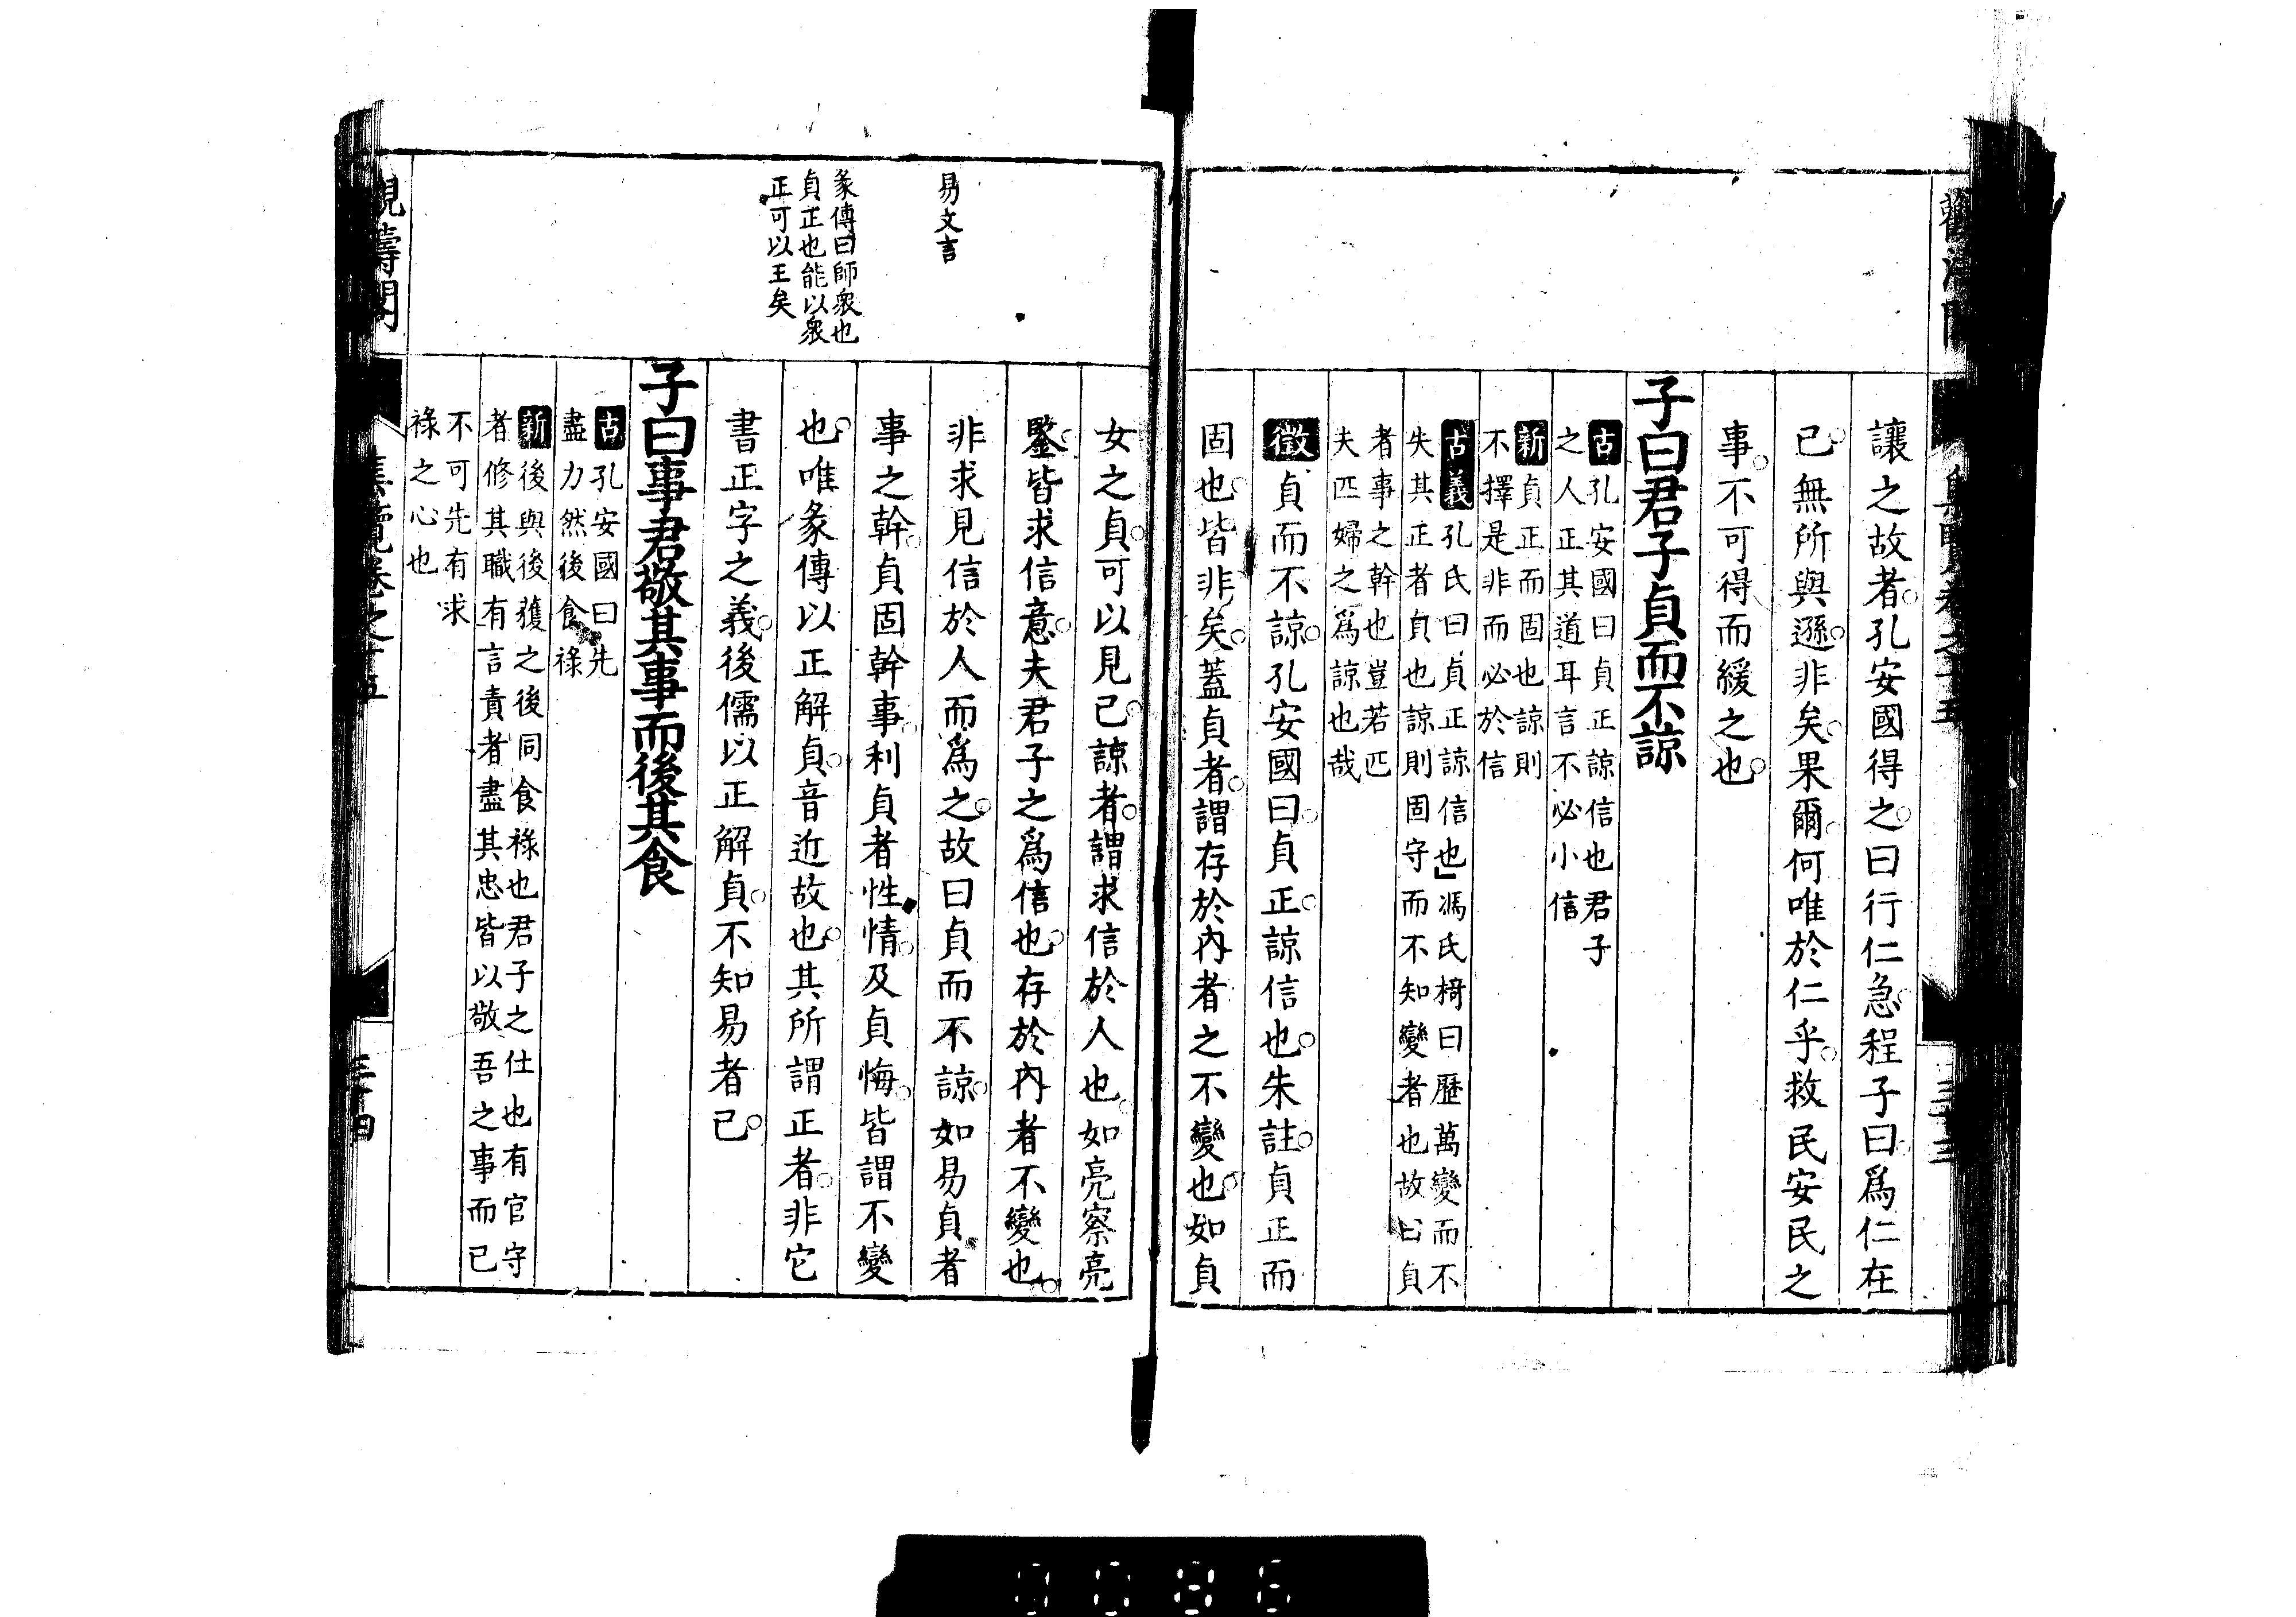 讓之故者孔安國得之曰行仁急程子曰爲仁在
己無所與遜非矣果爾何唯於仁乎救民安民之
事不可得而緩之也
子曰君子貞而不諒
古孔安國曰貞正諒信也君子
之人正其道耳言不必小信
新貞正而固也諒則
不擇是非而必於信
古義孔氏曰貞正諒信也馮氏椅曰歷萬變而不
失其正者貞也諒則固守而不知變者也故曰貞
者事之幹也豈若匹
夫匹婦之爲諒也哉
徵貞而不諒孔安國曰貞正諒信也朱註貞正而
固也皆非矣蓋貞者謂存於內者之不變也如貞
易文言
彖傳曰師衆也
貞正也能以衆
正可以王矣
女之貞可以見已諒者謂求信於人也如亮察亮
鑒皆求信意夫君子之爲信也存於內者不變也
非求見信於人而爲之故曰貞而不諒如易貞者
事之幹貞固幹事利貞者性情及貞悔皆謂不變
也唯彖傳以正解貞音近故也其所謂正者非它
書正字之義後儒以正解貞不知易者已
子曰事君敬其事而後其食
古孔安國曰先
盡力然後食祿
新後與後獲之後同食祿也君子之仕也有官守
者修其職有言責者盡其忠皆以敬吾之事而已
不可先有求
祿之心也
集覽卷之十五
三十四